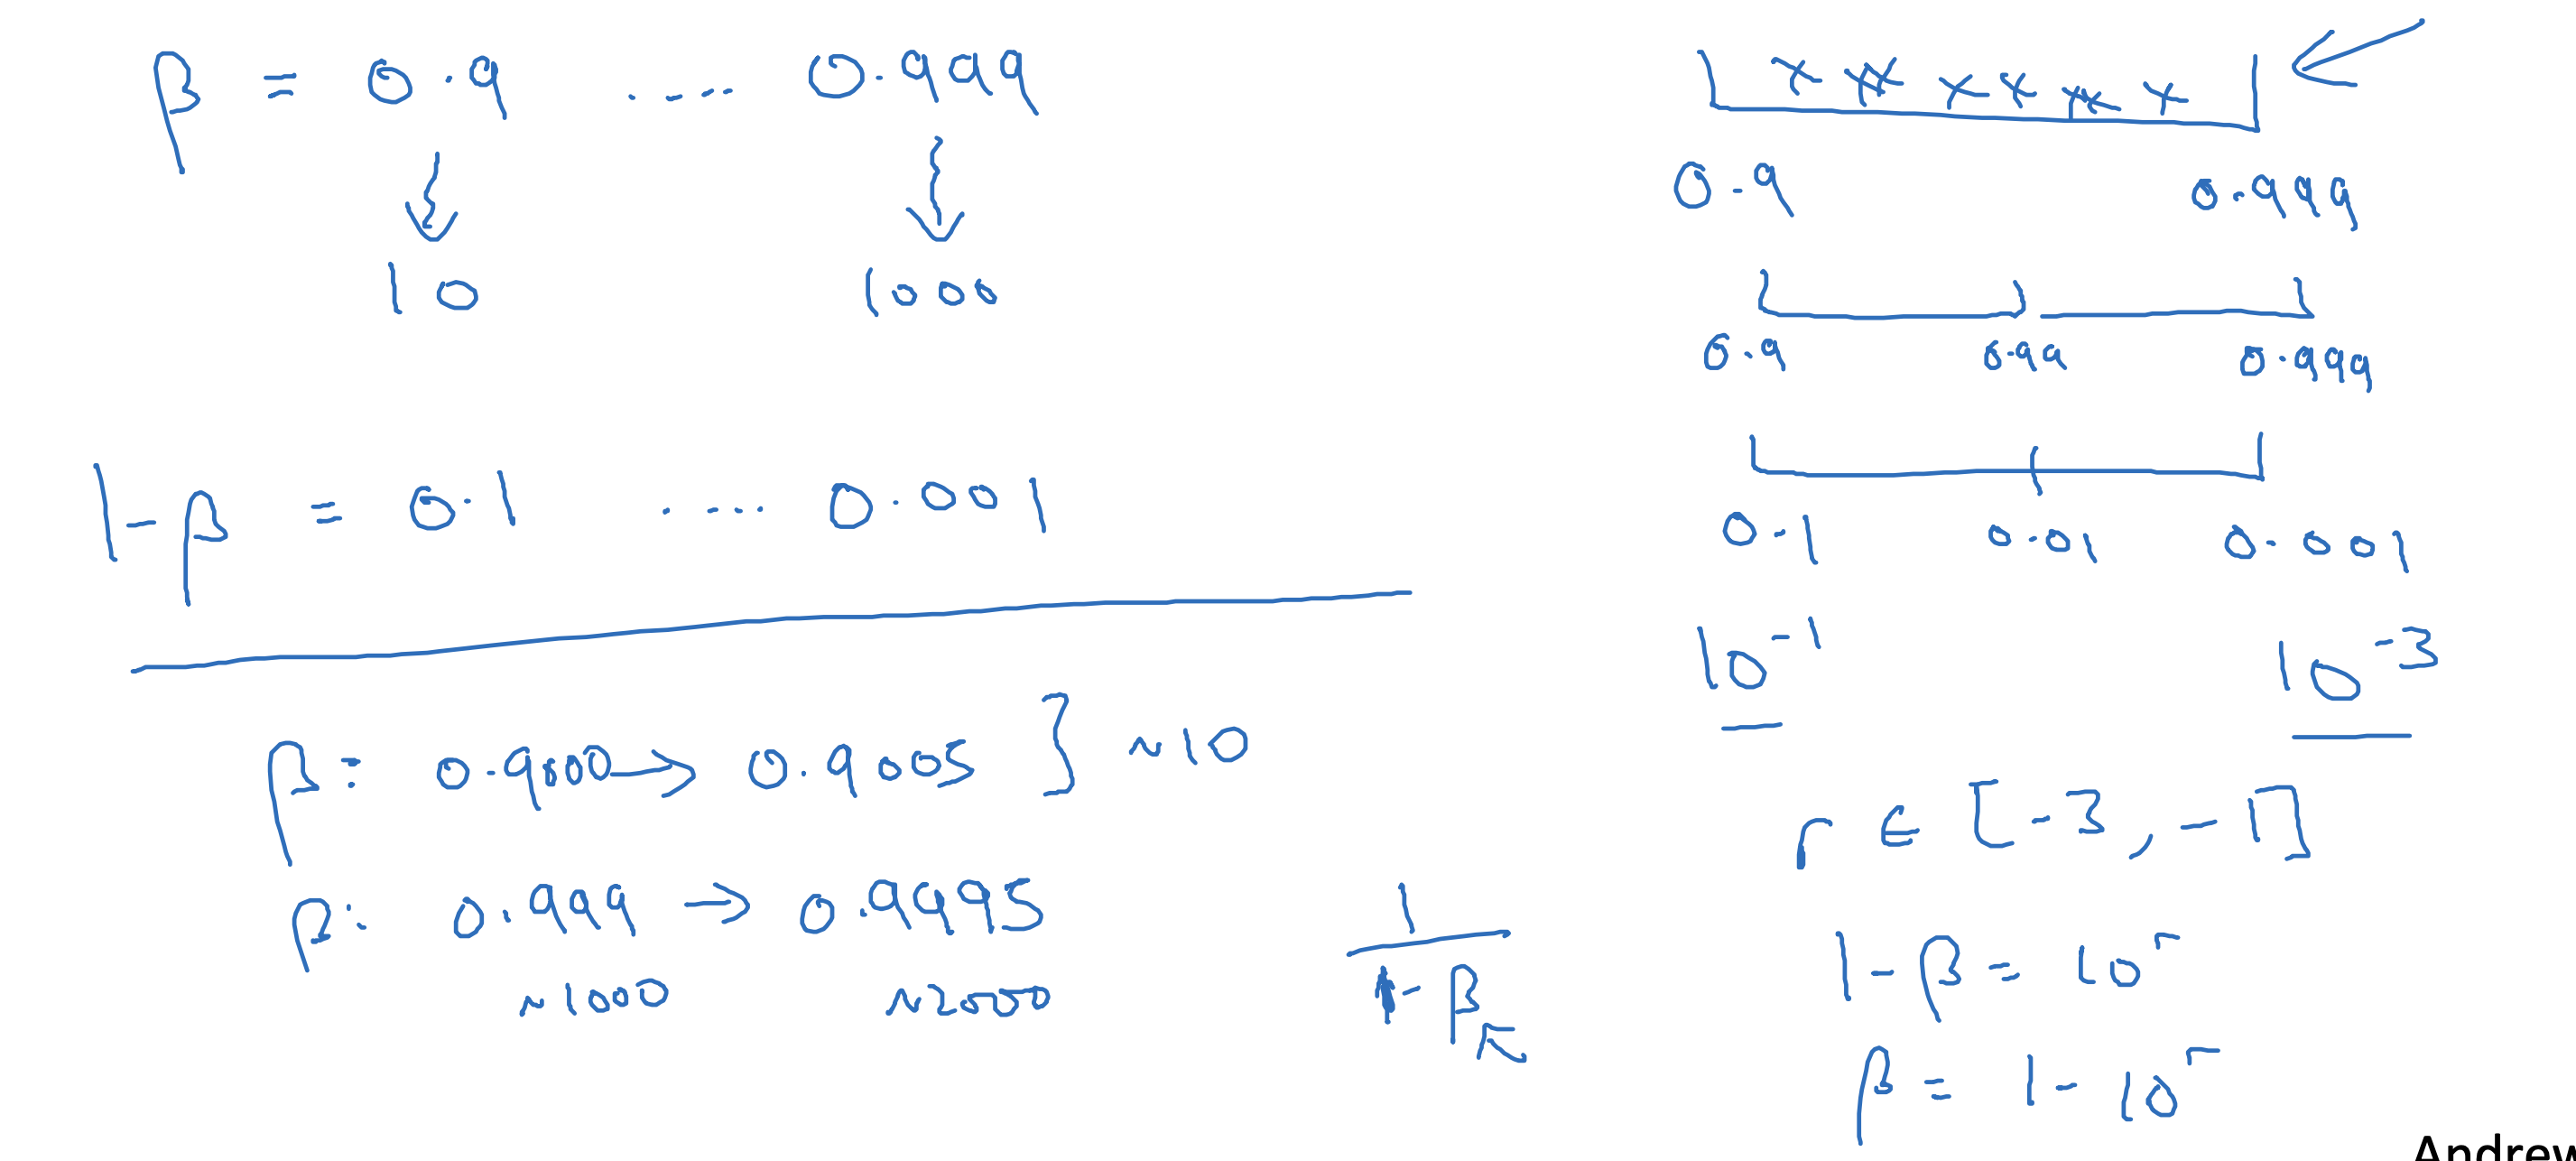 β = 0.9 .... 0.999
10 1000
1-β = 0.1 .... 0.001
β: 0.9000 → 0.9005 } ~10
β: 0.999 → 0.9995
~1000 ~2000
1
1-β
0.9 0.999
0.9 0.99 0.999
0.1 0.01 0.001
10⁻¹ 10⁻³
r ∈ [-3, -1]
1-β = 10ʳ
β = 1-10ʳ
Andrew